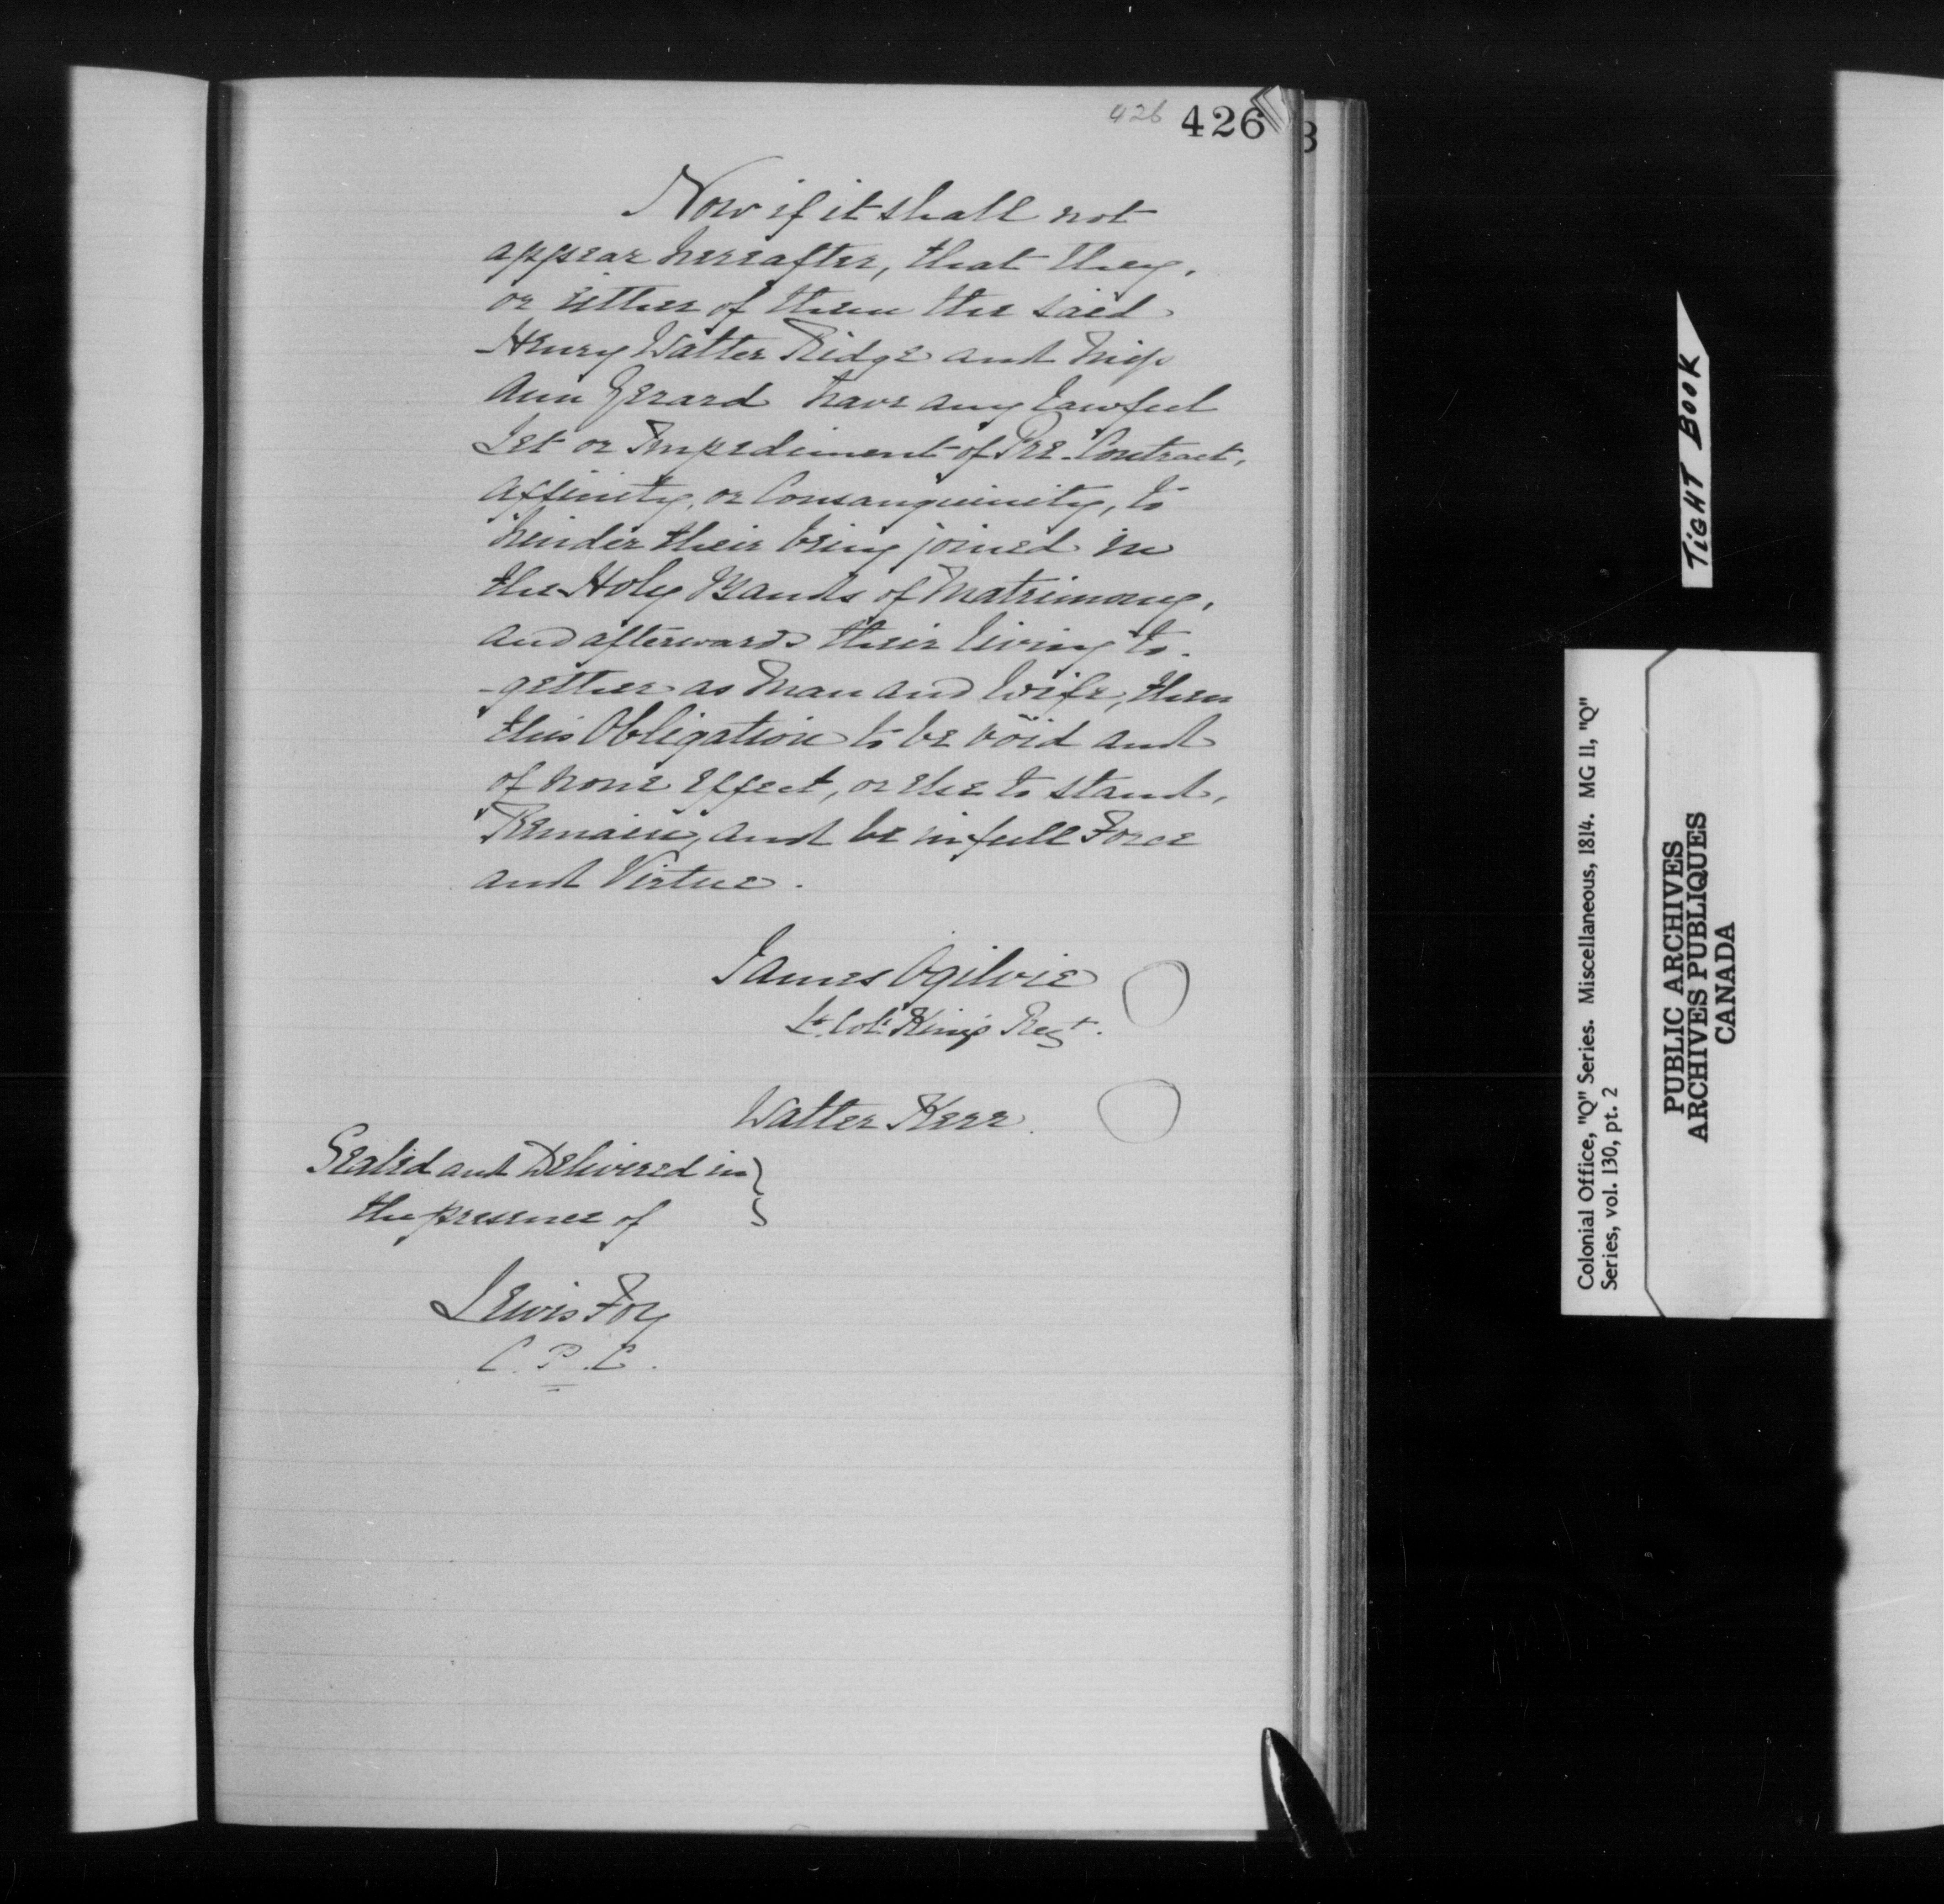 426 426
3
Now if it shall not
appear hereafter, that they,
or either of them the said
Henry Walter Ridge and Miss
Ann Gerard have any lawful
Let or Impediment of Pre-Contract,
affinity, or Consanguinity, to
hinder their being joined in
the Holy Bands of Matrimony,
and afterwards their living to-
-gether as Man and Wife, then
this Obligation to be void and
of none effect, or else to stand,
Remain, and be in full Force
and Virtue.
James Ogilvie
Lt. Col. King's Regt.
Walter Kerr.
Sealed and Delivered in
the presence of
Lewis Foy
C. P. C.
TIGHT BOOK
Colonial Office, "Q" Series. Miscellaneous, 1814. MG 11, "Q"
Series, vol. 130, pt. 2
PUBLIC ARCHIVES
ARCHIVES PUBLIQUES
CANADA